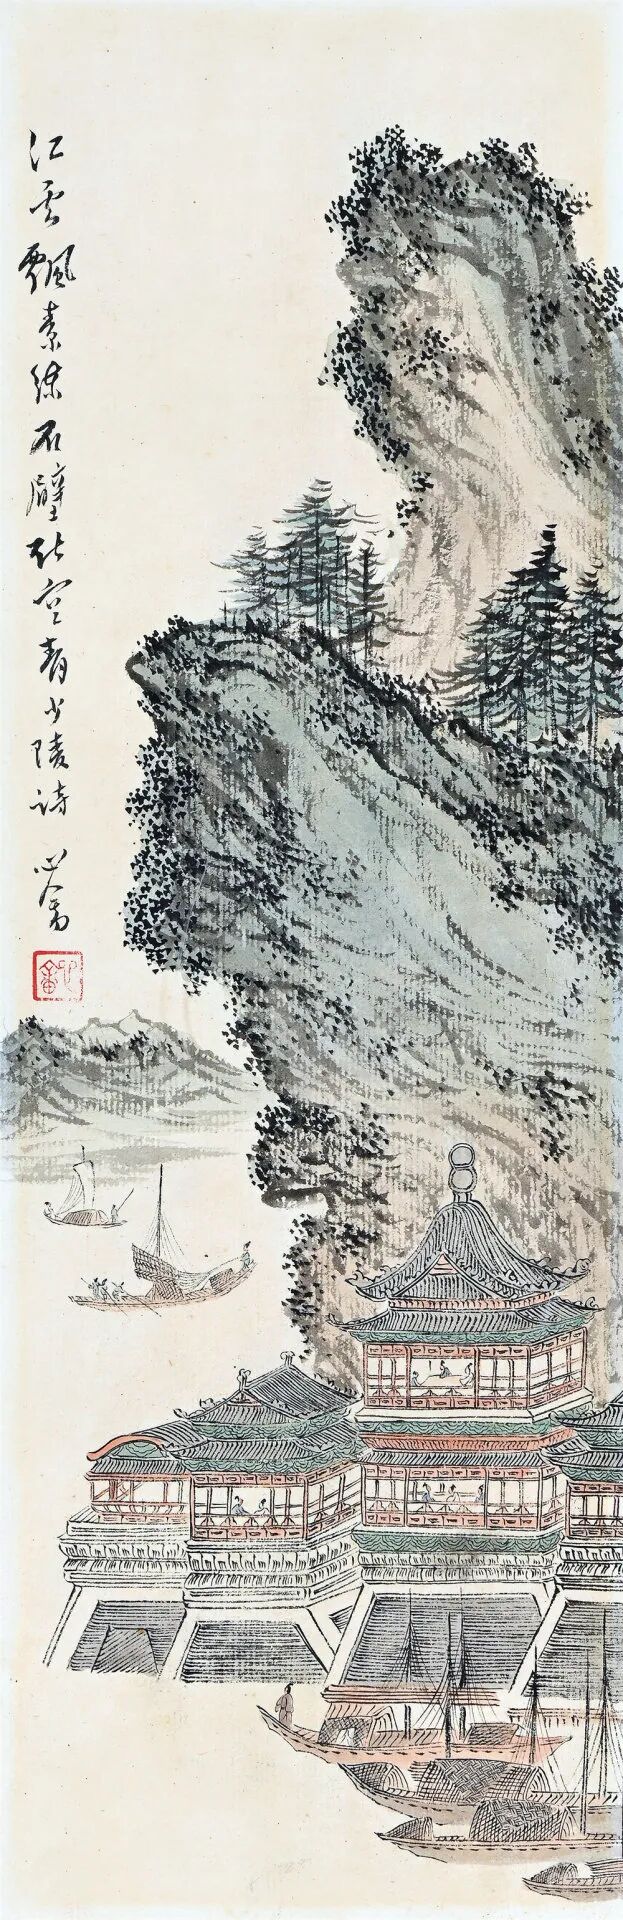 江雲飄素練石壁斷空青少陵詩 心畬
心畬